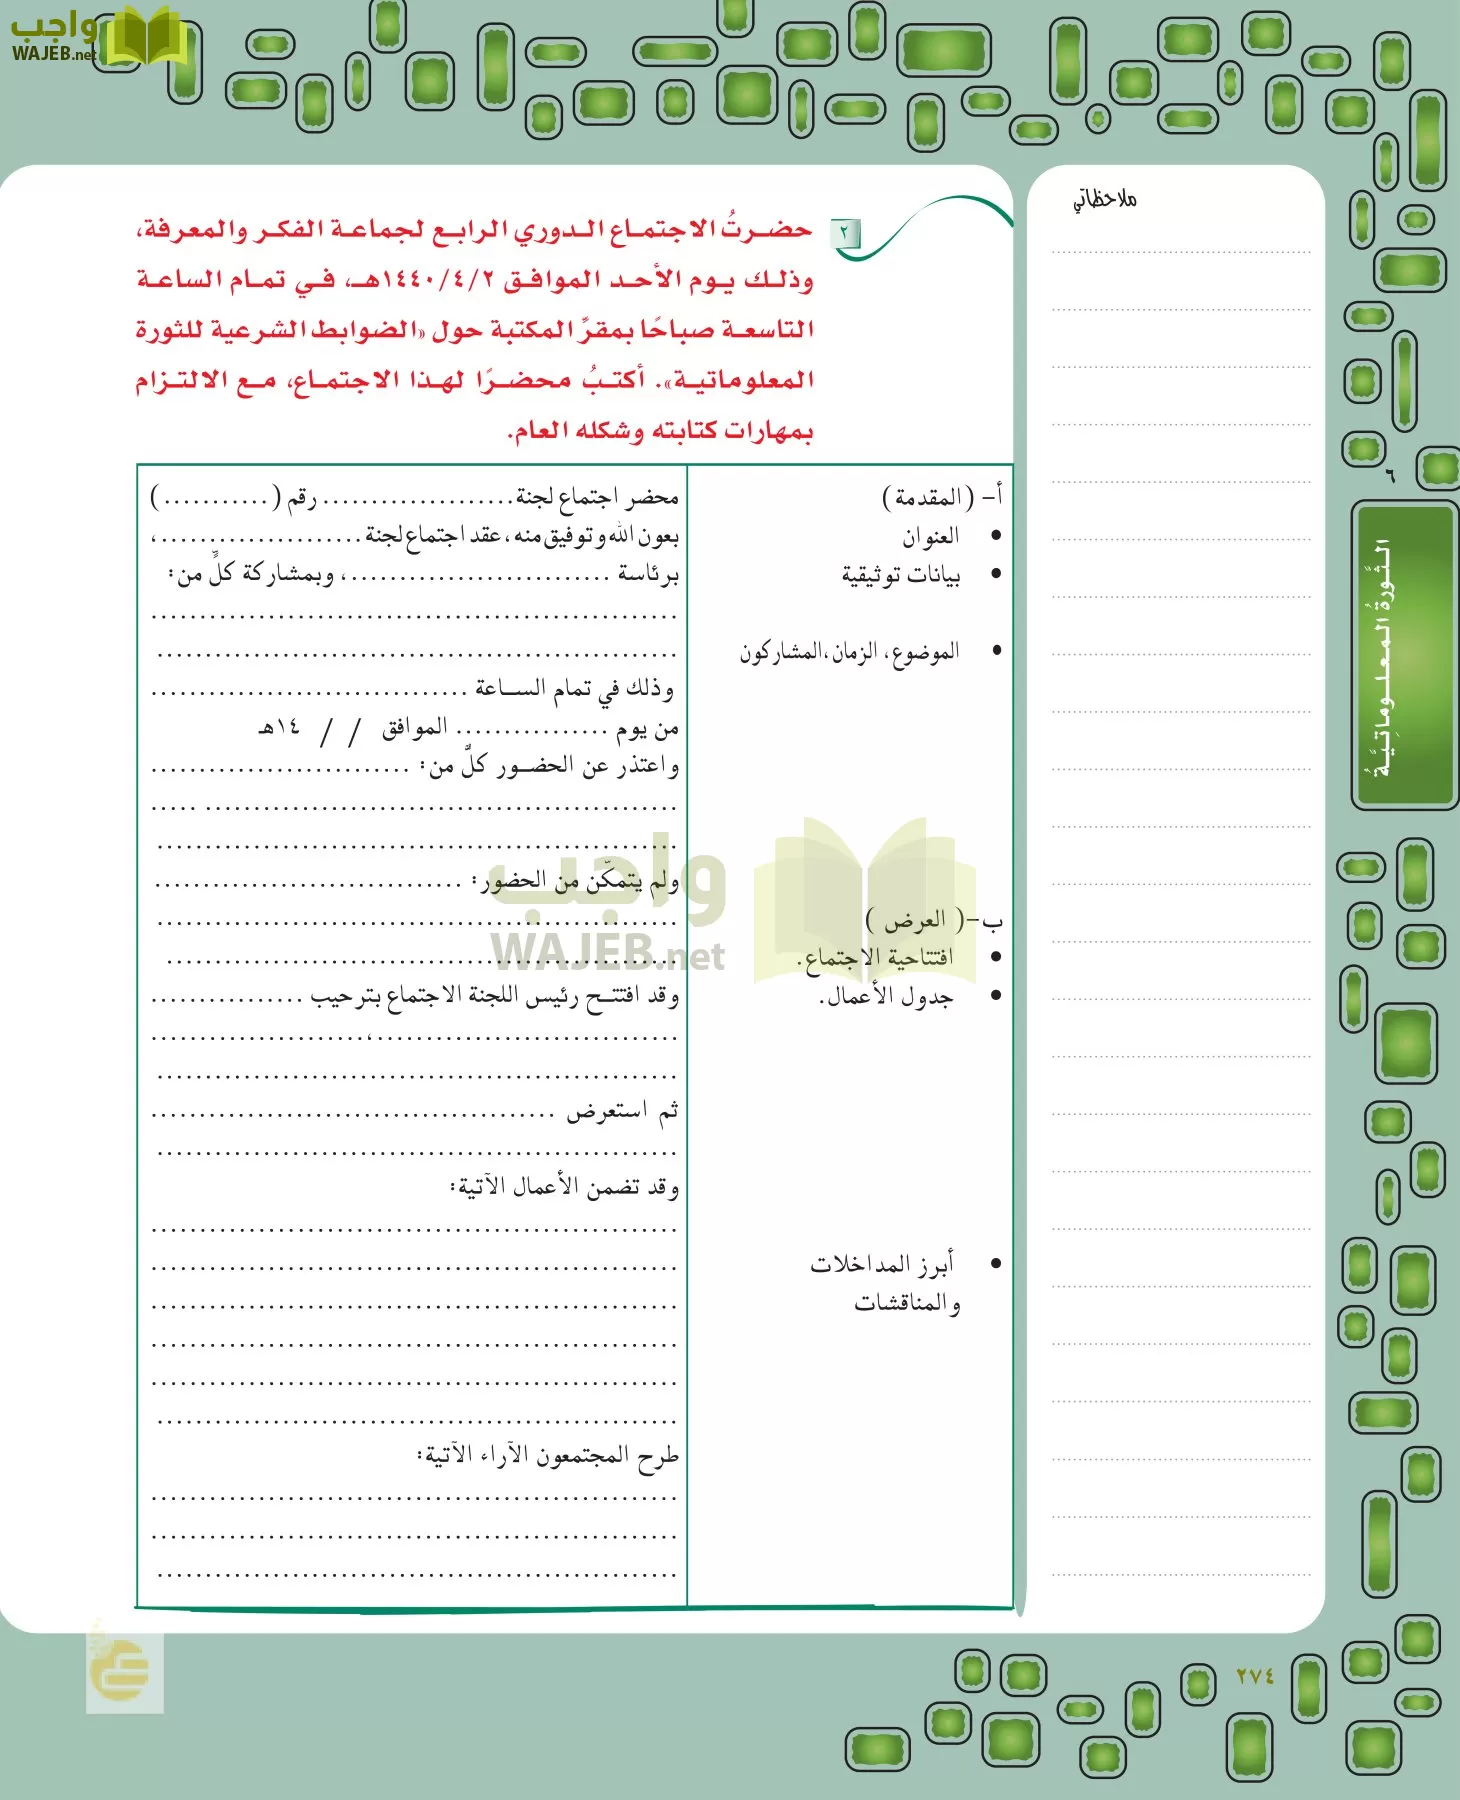 واجب
WAJEB.net
ملاحظاتي
٢
حضرتُ الاجتماع الدوري الرابع لجماعة الفكر والمعرفة،
وذلك يوم الأحد الموافق ١٤٤٠/٤/٢هـ، في تمام الساعة
التاسعة صباحًا بمقرِّ المكتبة حول «الضوابط الشرعية للثورة
المعلوماتية». أكتبُ محضرًا لهذا الاجتماع، مع الالتزام
بمهارات كتابته وشكله العام.
أ- (المقدمة)
• العنوان
• بيانات توثيقية
• الموضوع، الزمان، المشاركون
ب- ( العرض )
• افتتاحية الاجتماع.
• جدول الأعمال.
• أبرز المداخلات
والمناقشات
محضر اجتماع لجنة.................... رقم (...........)
بعون الله وتوفيق منه، عقد اجتماع لجنة .....................،
برئاسة ...........................، وبمشاركة كلٍّ من:
.......................................................
......................................................
وذلك في تمام الساعة .................................
من يوم ................ الموافق / / ١٤هـ
واعتذر عن الحضور كلٌّ من: ...........................
................................................. .....
......................................................
ولم يتمكّن من الحضور: ................................
......................................................
.....................................................
وقد افتتح رئيس اللجنة الاجتماع بترحيب ................
...............................،......................
......................................................
ثم استعرض ..........................................
......................................................
وقد تضمن الأعمال الآتية:
.......................................................
.......................................................
.......................................................
.......................................................
.......................................................
......................................................
طرح المجتمعون الآراء الآتية:
.......................................................
.......................................................
......................................................
واجب
WAJEB.net
٦
الثَّورةُ المعلوماتِيَّةُ
٢٧٤